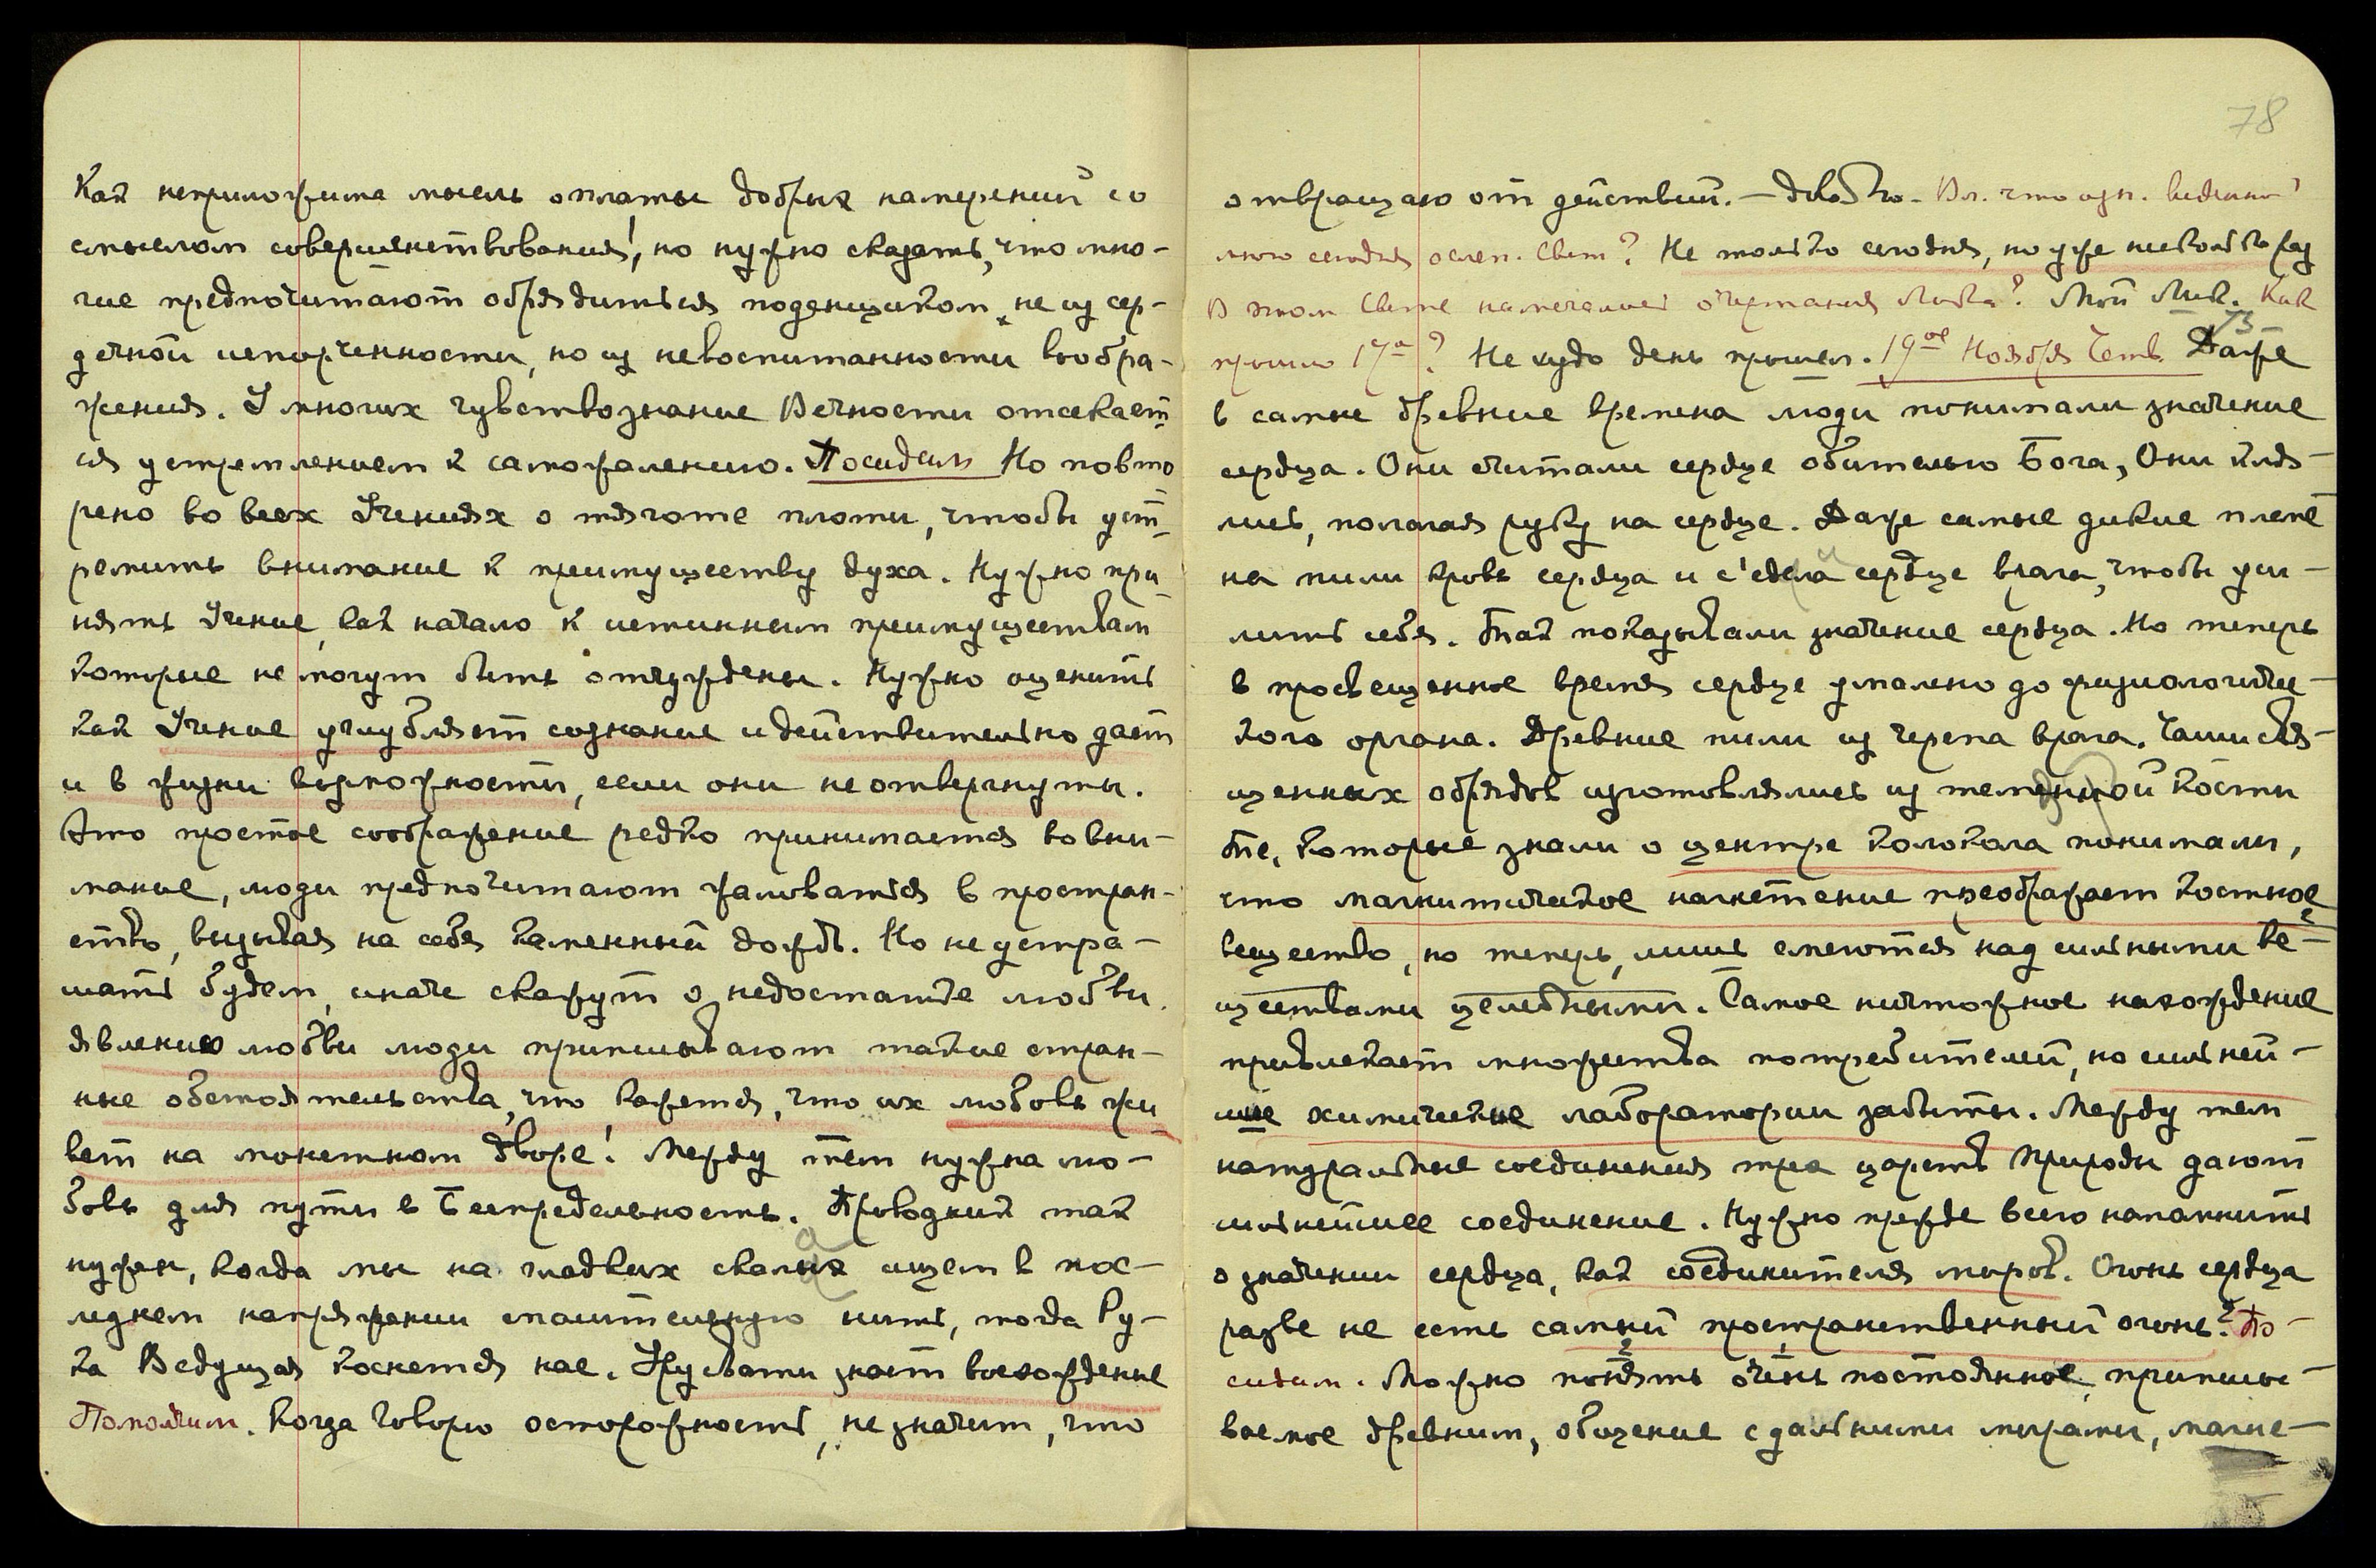 Как неприложима мысль оплаты добрых намерений со
смыслом совершенствования! но нужно сказать, что мно-
гие предпочитают обрядиться поденщиком, не из сер-
дечной испорченности, но из невоспитанности вообра-
жения. У многих чувствознание Вечности отсекает-
ся устремлением к саможалению. Посидим Но повто
рено во всех Учениях о тяготе плоти, чтобы уст-
ремить внимание к преимуществу духа. Нужно при
нять Учение, как начало к истинным преимуществам
которые не могут быть отчуждены. Нужно оценить
как Учение углубляет сознание и действительно дает
и в жизни возможности, если они не отвергнуты.
Это простое соображение редко принимается во вни-
мание, люди предпочитают жаловаться в простран-
ство, вызывая на себя каменный дождь. Но не устра-
шать будем, иначе скажут о недостатке любви.
Явлению любви люди приписывают такие стран-
ные обстоятельства, что кажется, что их любовь жи
вет на монетном дворе! Между тем нужна лю-
бовь для пути в Беспредельность. Проводник так
нужен, когда мы на гладких скалах ищем в пос-
леднем напряжении спасительную нить, тогда Ру-
ка Ведущая коснется нас. Урусвати знает восхождение
Помолчим. Когда Говорю осторожность, не значит, что
78
отвращаю от действий. — Довольно. Вл. что озн. виденный
мною сегодня ослеп. Свет? Не только сегодня, но уже несколько раз
В этом Свете намечались очертания Лика? Мой Лик. Как
прошло 17ª? Не худо день прошел. 19ᵒᵉ Ноября Четв. Даже
в самые древние времена люди понимали значение
сердца. Они считали сердце обителью Бога, Они кля-
лись, полагая руку на сердце. Даже самые дикие племе
на пили кровь сердца и с'едали сердце врага, чтобы уси-
лить себя. Так показывали значение сердца. Но теперь
в просвещенное время сердце умалено до физиологичес-
кого органа. Древние пили из черепа врага. Чаши свя-
щенных обрядов изготовлялись из теменной кости
Те, которые знали о центре колокола понимали,
что магнитическое нагнетение преображает костное
вещество, но теперь, лишь смеются над сильными ве-
ществами целебными. Самое ничтожное нахождение
привлекает множества потребителей, но сильней-
шие химические лаборатории забыты. Между тем
натуральные соединения трех царств Природы дают
сильнейшее соединение. Нужно прежде всего напомнить
о значении сердца, как соединителя миров. Огонь сердца
разве не есть самый пространственный огонь? По-
сидим. Можно понять очень постоянное, приписы-
ваемое древним, общение с дальними мирами, магне-